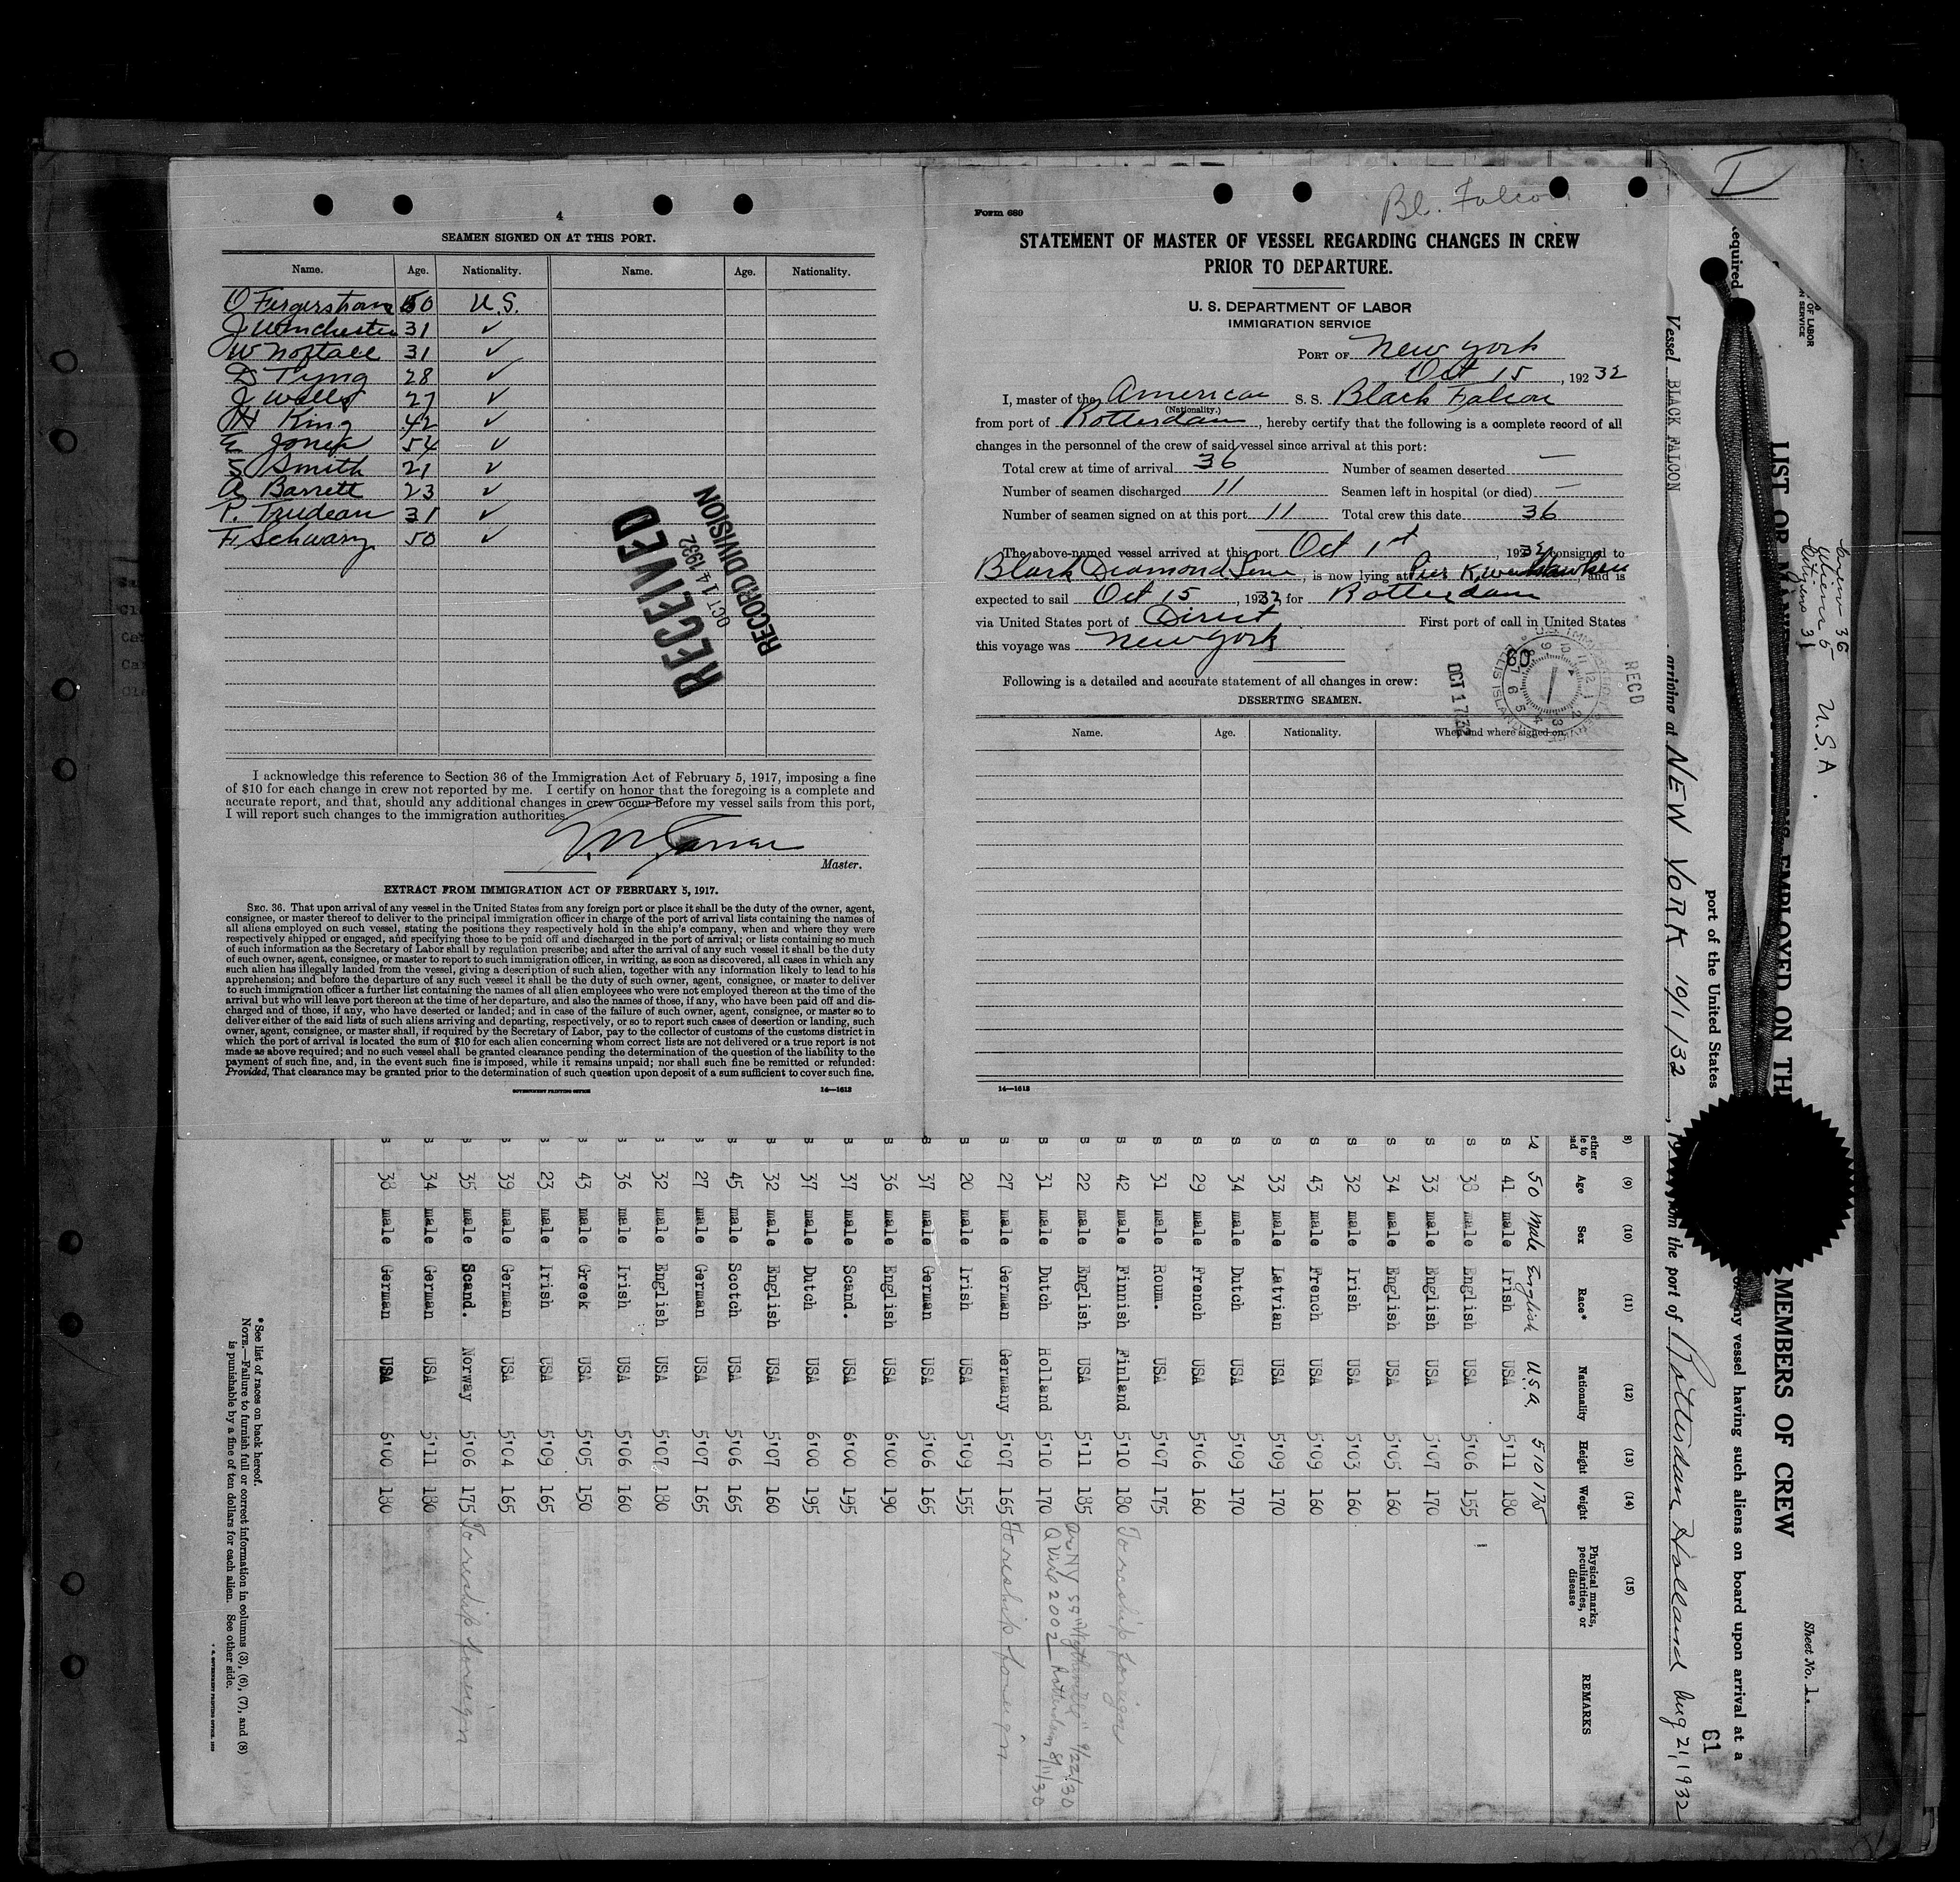 4
SEAMEN SIGNED ON AT THIS PORT.
Name. Age. Nationality. Name. Age. Nationality.
50 U.S.
J Winchester 31 ✓
W Noftall 31 ✓
D Tyng 28 ✓
J Wells 27 ✓
H King 42 ✓
E Jones 54 ✓
Smith 21 ✓
A Barrett 23 ✓
P. Trudeau 31 ✓
F. Schwarz 50 ✓
RECEIVED
OCT 14 1932
RECORD DIVISION
I acknowledge this reference to Section 36 of the Immigration Act of February 5, 1917, imposing a fine
of $10 for each change in crew not reported by me. I certify on honor that the foregoing is a complete and
accurate report, and that, should any additional changes in crew occur before my vessel sails from this port,
I will report such changes to the immigration authorities.
Master.
EXTRACT FROM IMMIGRATION ACT OF FEBRUARY 5, 1917.
SEC. 36. That upon arrival of any vessel in the United States from any foreign port or place it shall be the duty of the owner, agent,
consignee, or master thereof to deliver to the principal immigration officer in charge of the port of arrival lists containing the names of
all aliens employed on such vessel, stating the positions they respectively hold in the ship's company, when and where they were
respectively shipped or engaged, and specifying those to be paid off and discharged in the port of arrival; or lists containing so much
of such information as the Secretary of Labor shall by regulation prescribe; and after the arrival of any such vessel it shall be the duty
of such owner, agent, consignee, or master to report to such immigration officer, in writing, as soon as discovered, all cases in which any
such alien has illegally landed from the vessel, giving a description of such alien, together with any information likely to lead to his
apprehension; and before the departure of any such vessel it shall be the duty of such owner, agent, consignee, or master to deliver
to such immigration officer a further list containing the names of all alien employees who were not employed thereon at the time of the
arrival but who will leave port thereon at the time of her departure, and also the names of those, if any, who have been paid off and dis-
charged and of those, if any, who have deserted or landed; and in case of the failure of such owner, agent, consignee, or master so to
deliver either of the said lists of such aliens arriving and departing, respectively, or so to report such cases of desertion or landing, such
owner, agent, consignee, or master shall, if required by the Secretary of Labor, pay to the collector of customs of the customs district in
which the port of arrival is located the sum of $10 for each alien concerning whom correct lists are not delivered or a true report is not
made as above required; and no such vessel shall be granted clearance pending the determination of the question of the liability to the
payment of such fine, and, in the event such fine is imposed, while it remains unpaid; nor shall such fine be remitted or refunded:
Provided, That clearance may be granted prior to the determination of such question upon deposit of a sum sufficient to cover such fine.
GOVERNMENT PRINTING OFFICE 14—1613
Bl. Falcon
Form 689
STATEMENT OF MASTER OF VESSEL REGARDING CHANGES IN CREW
PRIOR TO DEPARTURE.
U. S. DEPARTMENT OF LABOR
IMMIGRATION SERVICE
PORT OF New York
Oct 15, 192 32
I, master of the American S. S. Black Falcon
(Nationality.)
from port of Rotterdam, hereby certify that the following is a complete record of all
changes in the personnel of the crew of said vessel since arrival at this port:
Total crew at time of arrival 36 Number of seamen deserted —
Number of seamen discharged 11 Seamen left in hospital (or died) —
Number of seamen signed on at this port 11 Total crew this date 36
The above-named vessel arrived at this port Oct 1st, 1932, consigned to
Black Diamond Line, is now lying at Pier K Weehawken, and is
expected to sail Oct 15, 1932, for Rotterdam
via United States port of Direct First port of call in United States
this voyage was New York
Following is a detailed and accurate statement of all changes in crew:
DESERTING SEAMEN.
Name. Age. Nationality. When and where signed on.
60
OCT 17 32
RECD
ELLIS ISLAND
14—1613
I
Sheet No. 1
LIST OR MANIFEST OF ALIENS EMPLOYED ON THE MEMBERS OF CREW
Crew 36
Aliens 5
Citizens 31
U.S.A.
port of the United States
any vessel having such aliens on board upon arrival at a
61
Vessel BLACK FALCON, arriving at NEW YORK 10/1/32, 19 from the port of Rotterdam Holland Aug 21, 1932
(9) (10) (11) (12) (13) (14) (15)
Age Sex Race* Nationality Height Weight Physical marks, peculiarities, or disease REMARKS
50 Male English U.S.A. 5 10 175
41 male Irish USA 5'11 180
38 male English USA 5'06 155
33 male English USA 5'07 170
34 male English USA 5'05 160
32 male Irish USA 5'03 160
43 male French USA 5'09 160
33 male Latvian USA 5'09 170
34 male Dutch USA 5'09 170
29 male French USA 5'06 160
31 male Roum. USA 5'07 175
42 male Finnish Finland 5'10 180 To reship foreign
22 male English USA 5'11 185
31 male Dutch Holland 5'10 170 Rotterdam 8/11/30
27 male German Germany 5'07 165 To reship foreign
20 male Irish USA 5'09 155
37 male German USA 5'06 165
36 male English USA 6'00 190
37 male Scand. USA 6'00 195
37 male Dutch USA 6'00 195
32 male English USA 5'07 160
45 male Scotch USA 5'06 165
27 male German USA 5'07 165
32 male English USA 5'07 180
36 male Irish USA 5'06 160
43 male Greek USA 5'05 150
23 male Irish USA 5'09 165
39 male German USA 5'04 165
35 male Scand. Norway 5'06 175 To reship foreign
34 male German USA 5'11 180
38 male German USA 6'00 180
* See list of races on back hereof.
NOTE.—Failure to furnish full or correct information in columns (3), (6), (7), and (8)
is punishable by a fine of ten dollars for each alien. See other side.